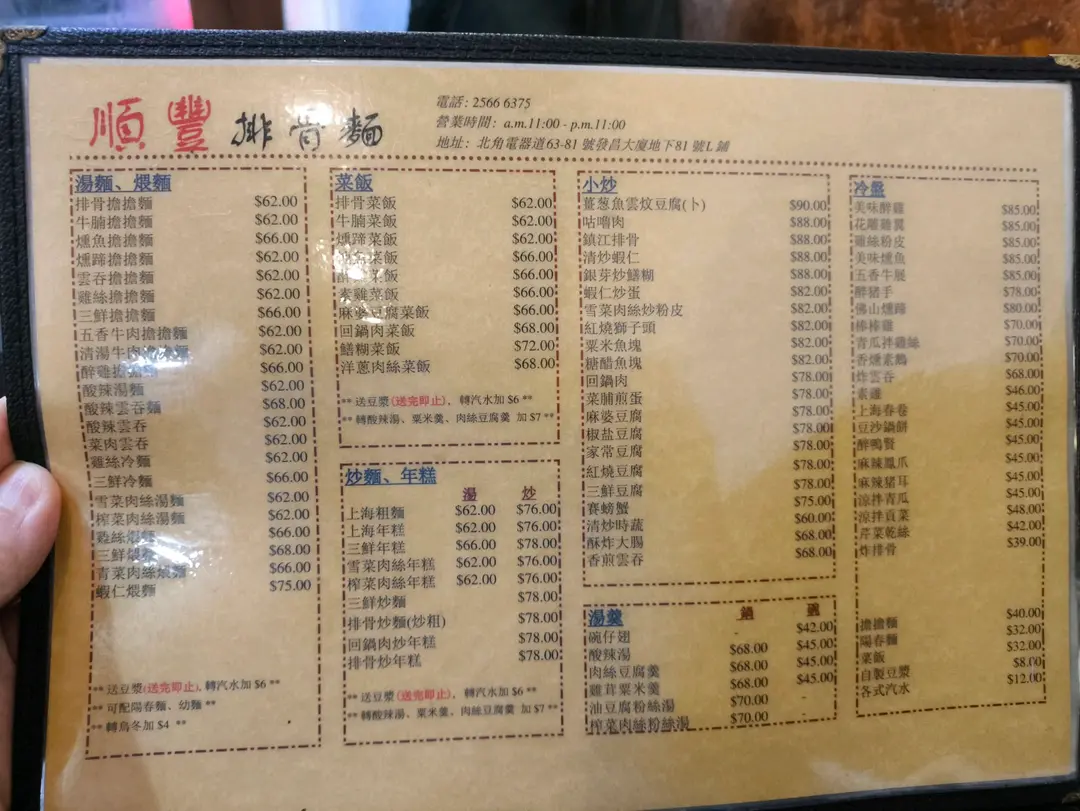 順豐排骨麵
電話: 2566 6375
營業時間: a.m.11:00 - p.m.11:00
地址: 北角電器道63-81 號發昌大廈地下81 號L 鋪
湯麵、煨麵
排骨擔擔麵 $62.00
牛腩擔擔麵 $62.00
燻魚擔擔麵 $66.00
燻蹄擔擔麵 $62.00
雲吞擔擔麵 $62.00
雞絲擔擔麵 $62.00
三鮮擔擔麵 $66.00
五香牛肉擔擔麵 $62.00
清湯牛肉擔擔麵 $62.00
醉雞擔擔麵 $66.00
酸辣湯麵 $62.00
酸辣雲吞麵 $68.00
酸辣雲吞 $62.00
菜肉雲吞 $62.00
雞絲冷麵 $62.00
三鮮冷麵 $66.00
雪菜肉絲湯麵 $62.00
榨菜肉絲湯麵 $62.00
雞絲煨麵 $66.00
三鮮煨麵 $68.00
青菜肉絲煨麵 $66.00
蝦仁煨麵 $75.00
** 送豆漿(送完即止), 轉汽水加 $6 **
** 可配陽春麵、幼麵 **
** 轉烏冬加 $4 **
菜飯
排骨菜飯 $62.00
牛腩菜飯 $62.00
燻蹄菜飯 $62.00
菜飯 $66.00
菜飯 $66.00
素雞菜飯 $66.00
麻婆豆腐菜飯 $66.00
回鍋肉菜飯 $68.00
鱔糊菜飯 $72.00
洋蔥肉絲菜飯 $68.00
** 送豆漿(送完即止), 轉汽水加 $6 **
** 轉酸辣湯、粟米羹、肉絲豆腐羹 加 $7 **
炒麵、年糕
湯 炒
上海粗麵 $62.00 $76.00
上海年糕 $62.00 $76.00
三鮮年糕 $66.00 $78.00
雪菜肉絲年糕 $62.00 $76.00
榨菜肉絲年糕 $62.00 $76.00
三鮮炒麵 $78.00
排骨炒麵(炒粗) $78.00
回鍋肉炒年糕 $78.00
排骨炒年糕 $78.00
** 送豆漿(送完即止), 轉汽水加 $6 **
** 轉酸辣湯、粟米羹、肉絲豆腐羹 加 $7 **
小炒
薑葱魚雲炆豆腐(卜) $90.00
咕嚕肉 $88.00
鎮江排骨 $88.00
清炒蝦仁 $88.00
銀芽炒鱔糊 $88.00
蝦仁炒蛋 $82.00
雪菜肉絲炒粉皮 $82.00
紅燒獅子頭 $82.00
粟米魚塊 $82.00
糖醋魚塊 $82.00
回鍋肉 $78.00
菜脯煎蛋 $78.00
麻婆豆腐 $78.00
椒鹽豆腐 $78.00
家常豆腐 $78.00
紅燒豆腐 $78.00
三鮮豆腐 $78.00
賽螃蟹 $75.00
清炒時蔬 $60.00
酥炸大腸 $68.00
香煎雲吞 $68.00
湯羹
鍋 碗
碗仔翅 - $42.00
酸辣湯 $68.00 $45.00
肉絲豆腐羹 $68.00 $45.00
雞茸粟米羹 $68.00 $45.00
油豆腐粉絲湯 $70.00 -
榨菜肉絲粉絲湯 $70.00 -
冷盤
美味醉雞 $85.00
花雕雞翼 $85.00
雞絲粉皮 $85.00
美味燻魚 $85.00
五香牛𦟌 $85.00
醉豬手 $78.00
佛山燻蹄 $80.00
棒棒雞 $70.00
青瓜拌雞絲 $70.00
香燻素鵝 $70.00
炸雲吞 $68.00
素雞 $46.00
上海春卷 $45.00
豆沙鍋餅 $45.00
醉鴨腎 $45.00
麻辣鳳爪 $45.00
麻辣豬耳 $45.00
涼拌青瓜 $45.00
涼拌貢菜 $48.00
芹菜乾絲 $42.00
炸排骨 $39.00
擔擔麵 $40.00
陽春麵 $32.00
菜飯 $32.00
自製豆漿 $8.00
各式汽水 $12.00